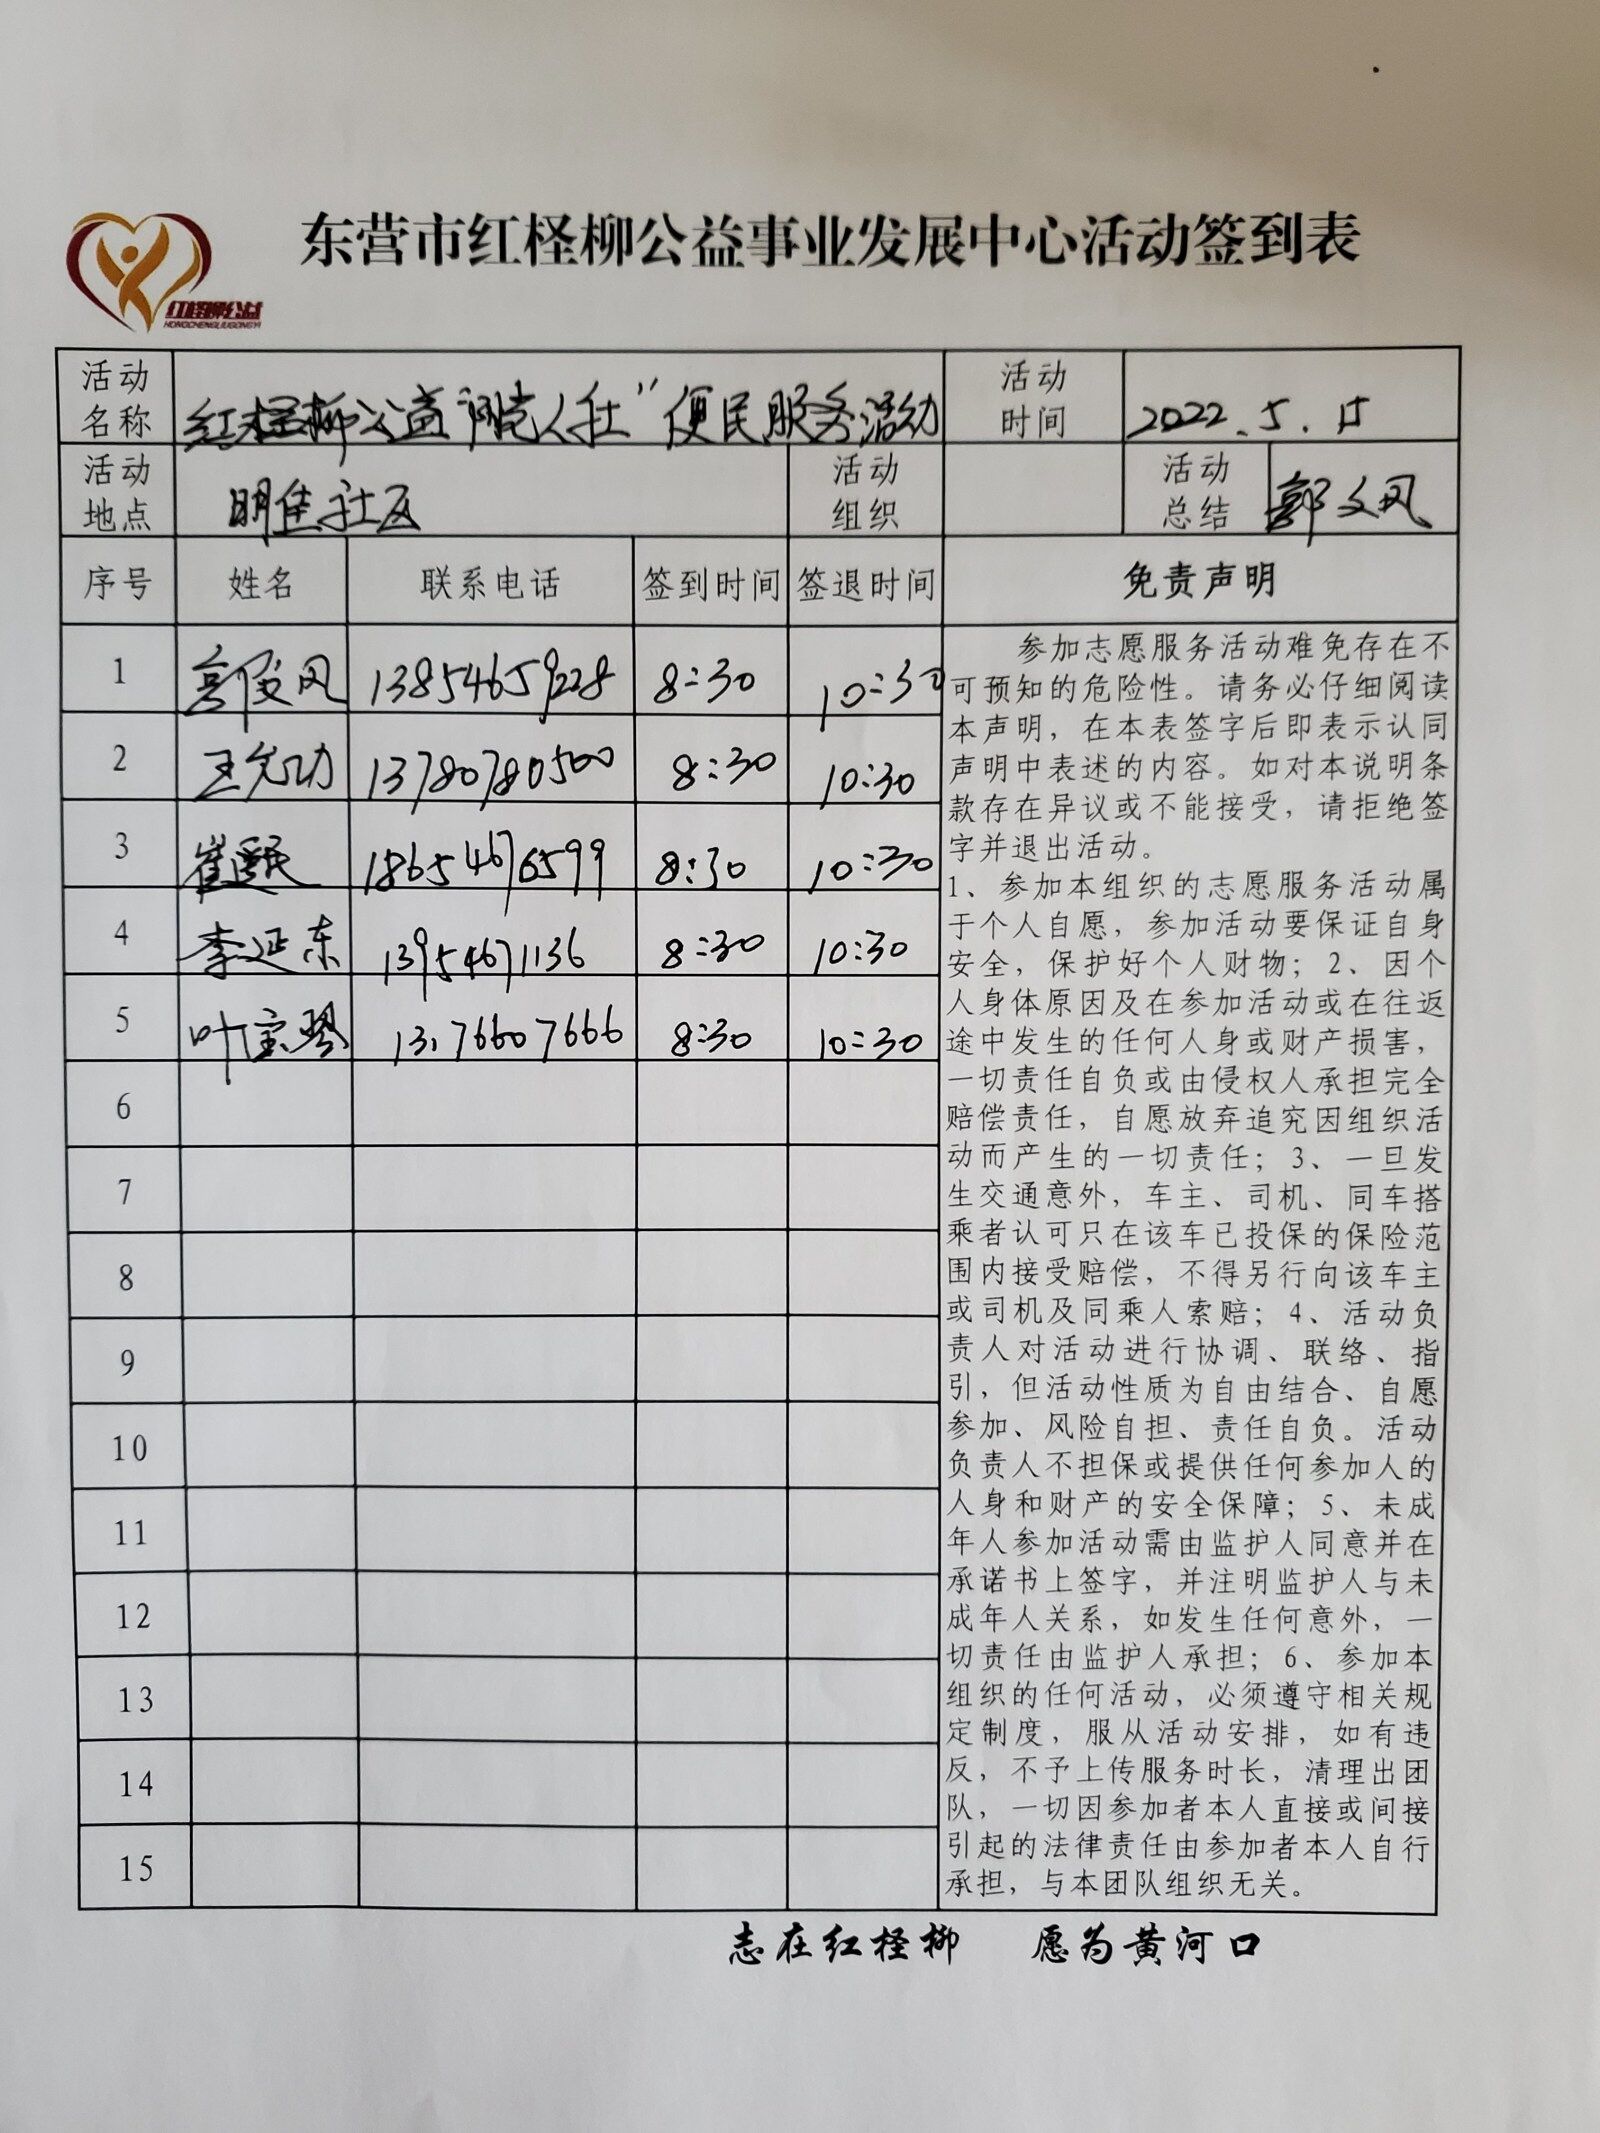 东营市红柽柳公益事业发展中心活动签到表
红柽柳公益
HONGCHENGLIUGONGYI
活动名称 红柽柳公益“ 人社”便民服务活动 活动时间 2022.5.15
活动地点 明佳社区 活动组织 活动总结 郭文风
序号 姓名 联系电话 签到时间 签退时间 免责声明
1 13854659228 8:30 10:30
2 王允功 13780780500 8:30 10:30
3 崔 18654676599 8:30 10:30
4 李延东 13954671136 8:30 10:30
5 叶宝琴 13176607666 8:30 10:30
6
7
8
9
10
11
12
13
14
15
参加志愿服务活动难免存在不
可预知的危险性。请务必仔细阅读
本声明，在本表签字后即表示认同
声明中表述的内容。如对本说明条
款存在异议或不能接受，请拒绝签
字并退出活动。
1、参加本组织的志愿服务活动属
于个人自愿，参加活动要保证自身
安全，保护好个人财物；2、因个
人身体原因及在参加活动或在往返
途中发生的任何人身或财产损害，
一切责任自负或由侵权人承担完全
赔偿责任，自愿放弃追究因组织活
动而产生的一切责任；3、一旦发
生交通意外，车主、司机、同车搭
乘者认可只在该车已投保的保险范
围内接受赔偿，不得另行向该车主
或司机及同乘人索赔；4、活动负
责人对活动进行协调、联络、指
引，但活动性质为自由结合、自愿
参加、风险自担、责任自负。活动
负责人不担保或提供任何参加人的
人身和财产的安全保障；5、未成
年人参加活动需由监护人同意并在
承诺书上签字，并注明监护人与未
成年人关系，如发生任何意外，一
切责任由监护人承担；6、参加本
组织的任何活动，必须遵守相关规
定制度，服从活动安排，如有违
反，不予上传服务时长，清理出团
队，一切因参加者本人直接或间接
引起的法律责任由参加者本人自行
承担，与本团队组织无关。
志在红柽柳 愿为黄河口